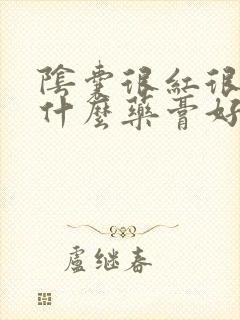 陰囊很紅很
什麼藥膏好
盧继春